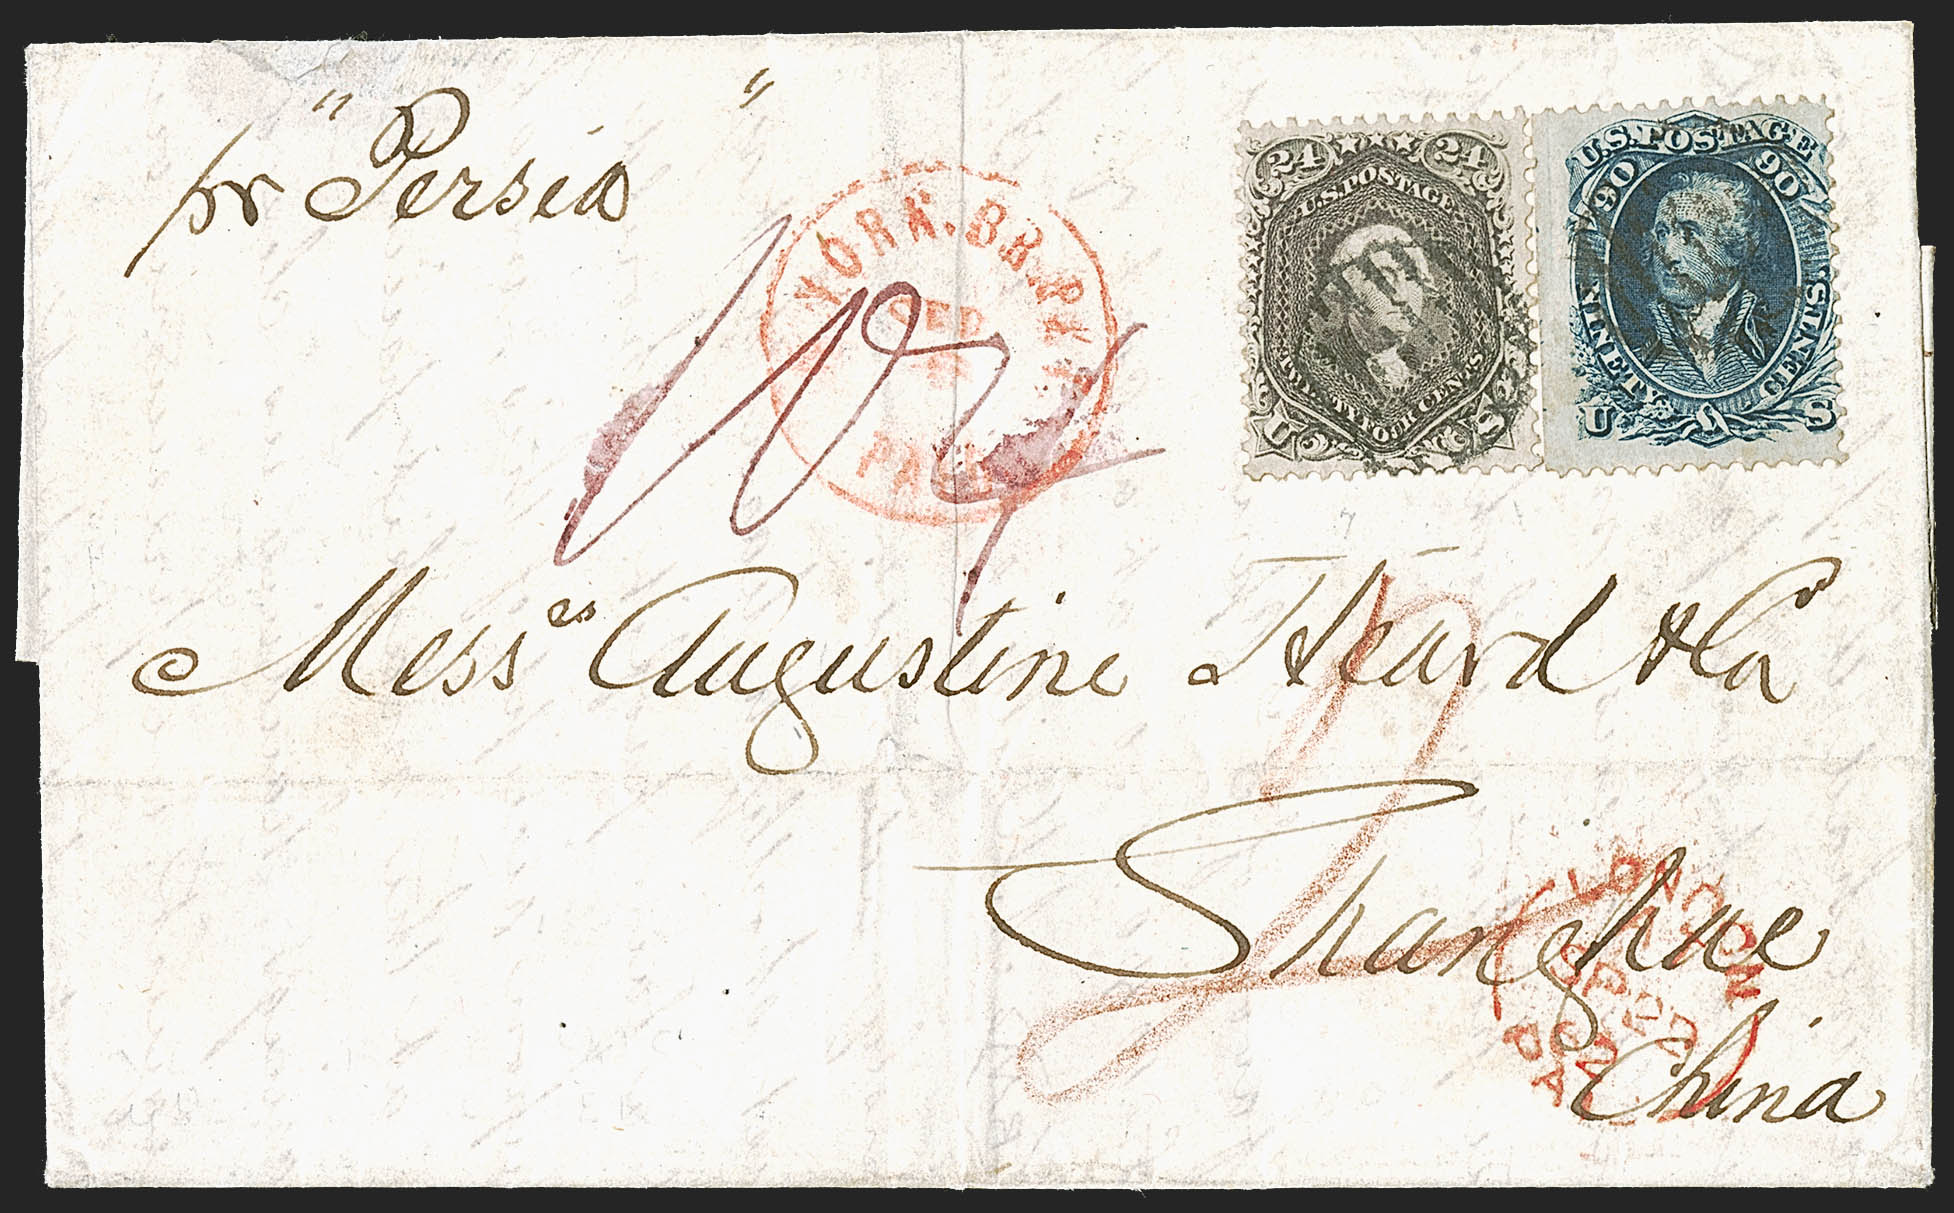 pr "Persia"
YORK. BR. PKT.
SEP
PAID
24 24
U.S. POSTAGE
TWENTY FOUR CENTS
U S
U.S. POSTAGE
90 90
NINETY CENTS
U S
Mess^rs Augustine Heard & Co
Shanghae
China
LONDON
PAID